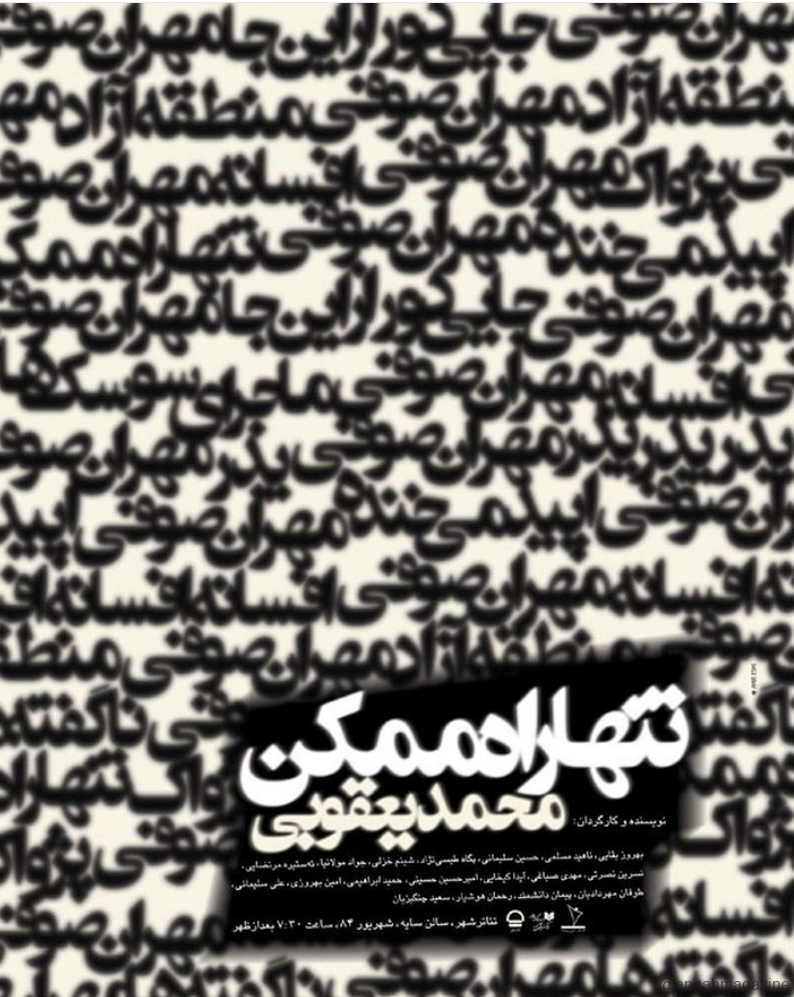 مهران صوفی جایی دور از این جا مهران صوفی
منطقه آزاد مهران صوفی منطقه آزاد مه
ی پژواک مهران صوفی افسانه مهران صوف
اپیدمی خنده مهران صوفی تنها راه ممک
مهران صوفی جایی دور از این جا مهران صوف
ی افسانه مهران صوفی ماجرای سوسک‌ها
پدر پدر پدر مهران صوفی پدر مهران صوف
ان صوفی اپیدمی خنده مهران صوفی اپید
نه افسانه مهران صوفی افسانه افسانه اف
صو منطقه آزاد مهران صوفی منطق
تنها راه ممکن
محمد یعقوبی
نویسنده و کارگردان:
بهروز بقایی، ناهید مسلمی، حسین سلیمانی، پگاه طبسی‌نژاد، شبنم خزلی، جواد مولانیا، نه‌ستیره مرتضایی،
نسرین نصرتی، مهدی صباغی، آیدا کیخایی، امیرحسین حسینی، حمید ابراهیمی، امین بهروزی، علی سلیمانی،
طوفان مهردادیان، پیمان دانشمند، رحمان هوشیار، سعید چنگیزیان
تئاترشهر، سالن سایه، شهریور ۸۴، ساعت ۷:۳۰ بعدازظهر